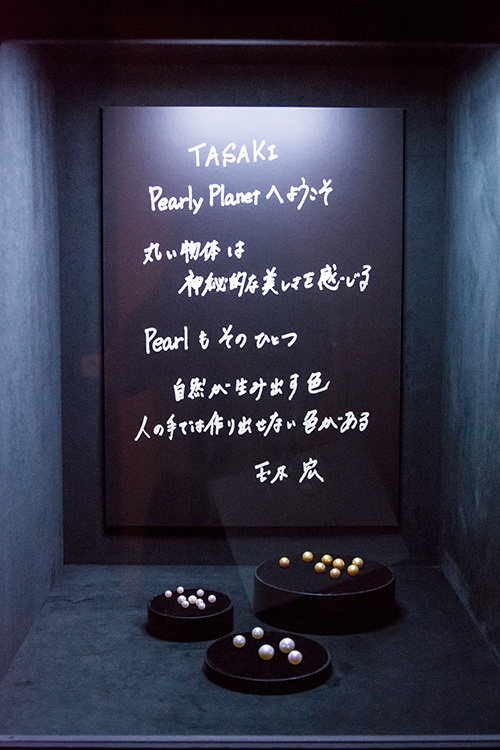 TASAKI
Pearly Planet へようこそ
丸い物体は
神秘的な美しさを感じる
Pearl もそのひとつ
自然が生み出す色
人の手では作り出せない色がある
玉木 宏